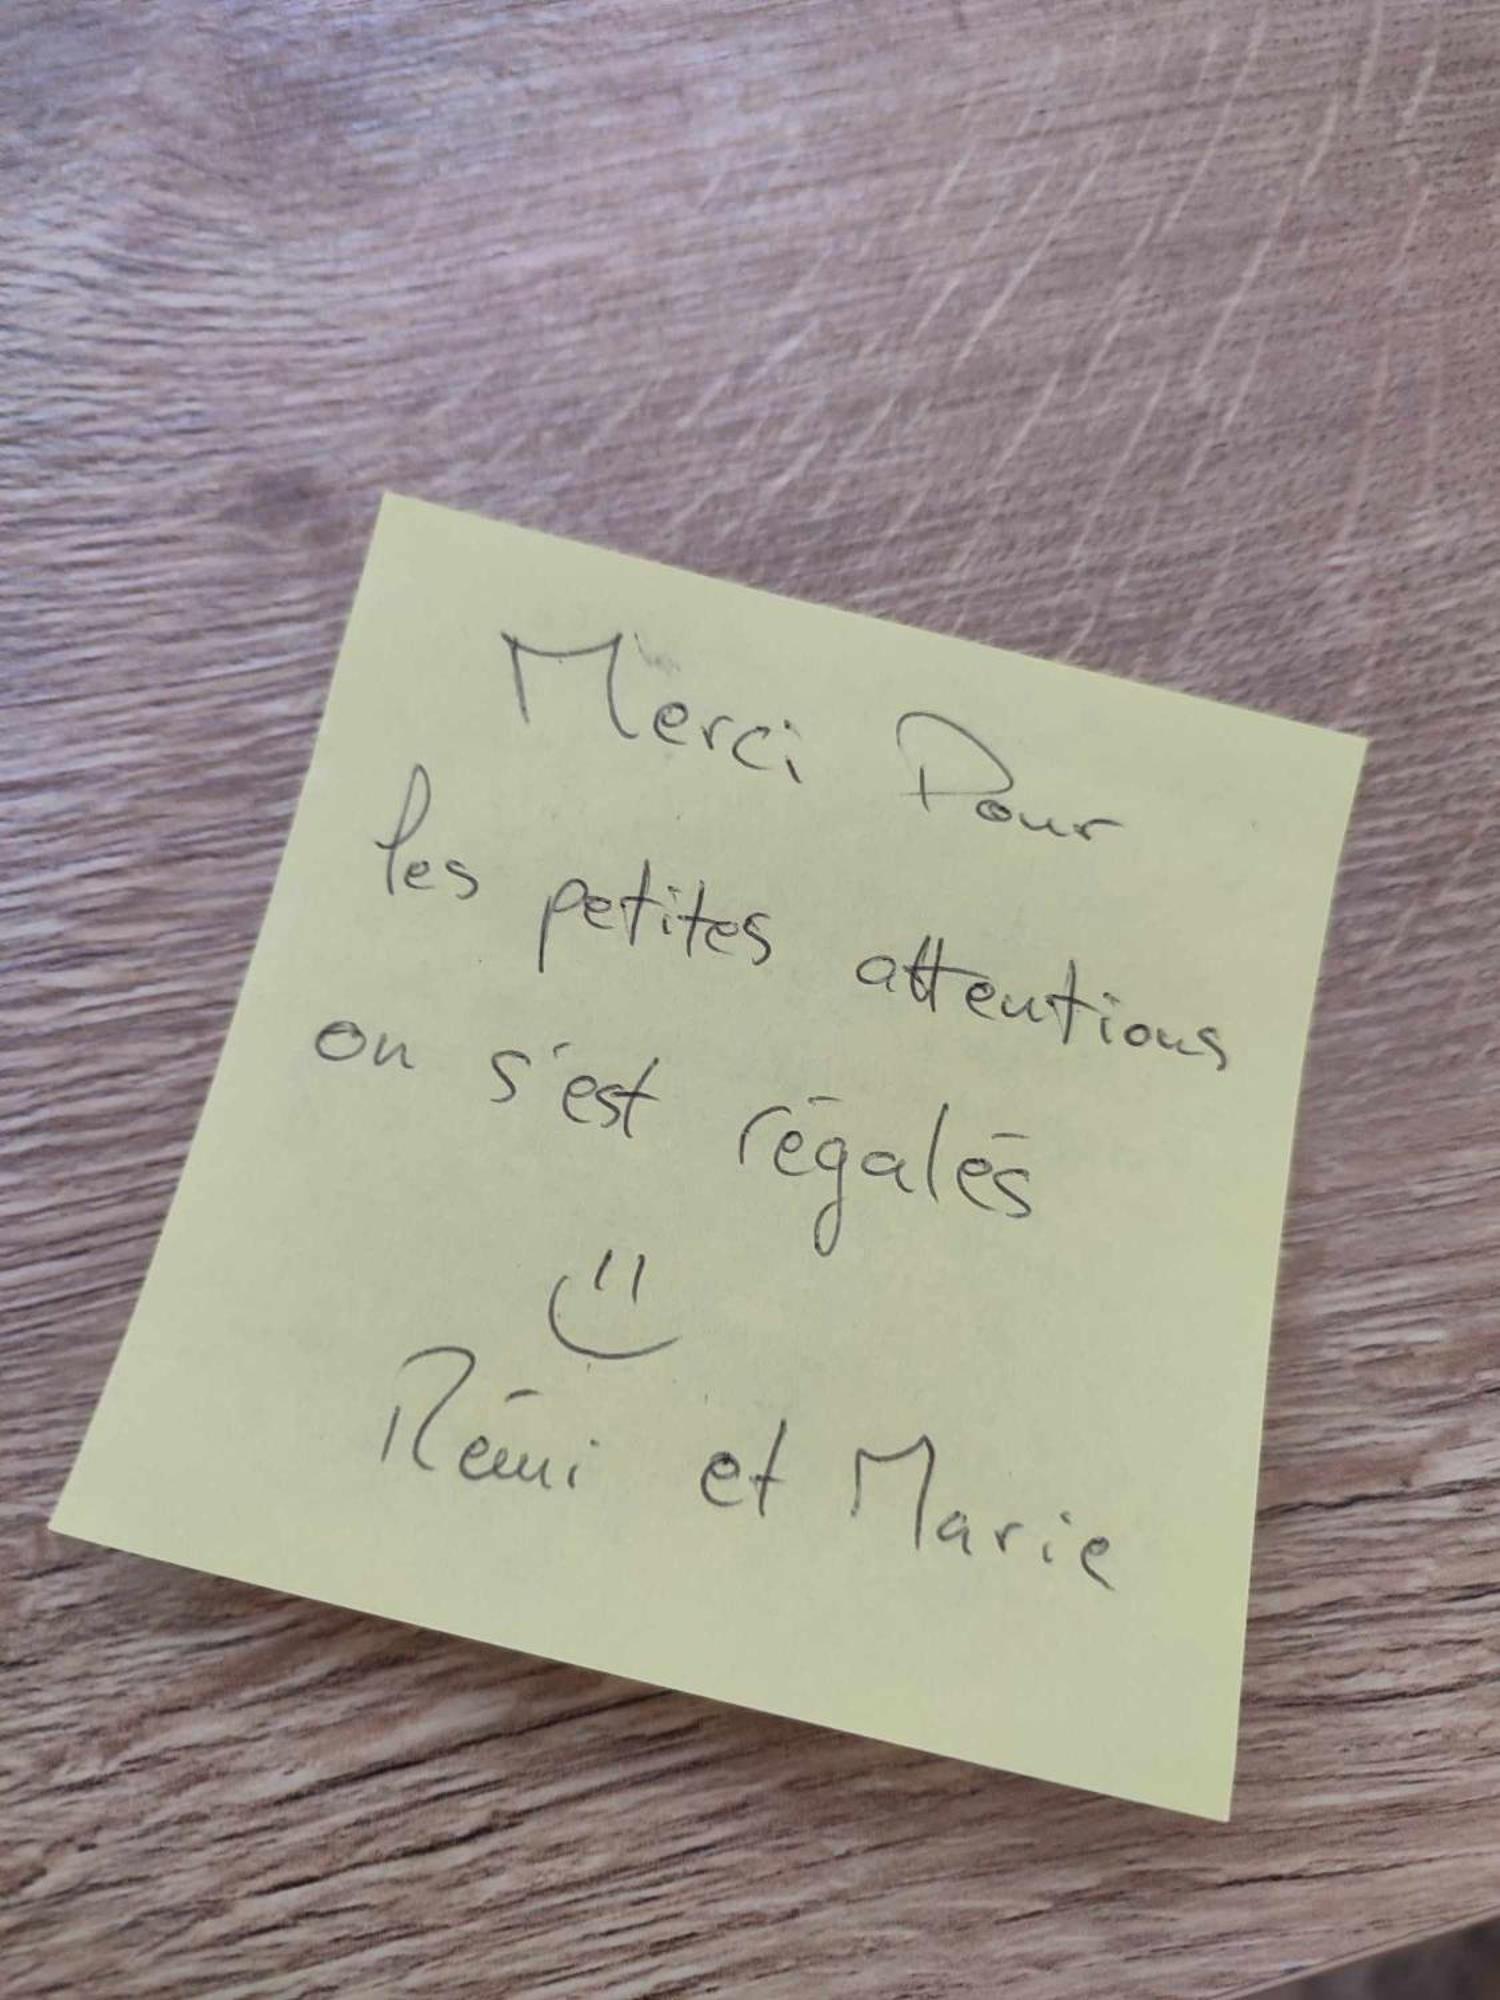 Merci Pour
les petites attentions
on s'est régalés
Rémi et Marie